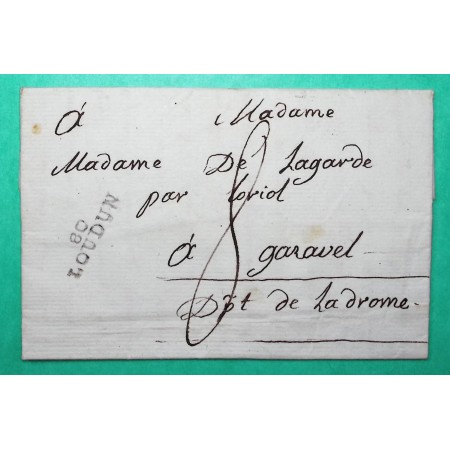 á Madame
Madame De Lagarde
par loriol
á garavel
Dpt de Ladrome
8
80
LOUDUN